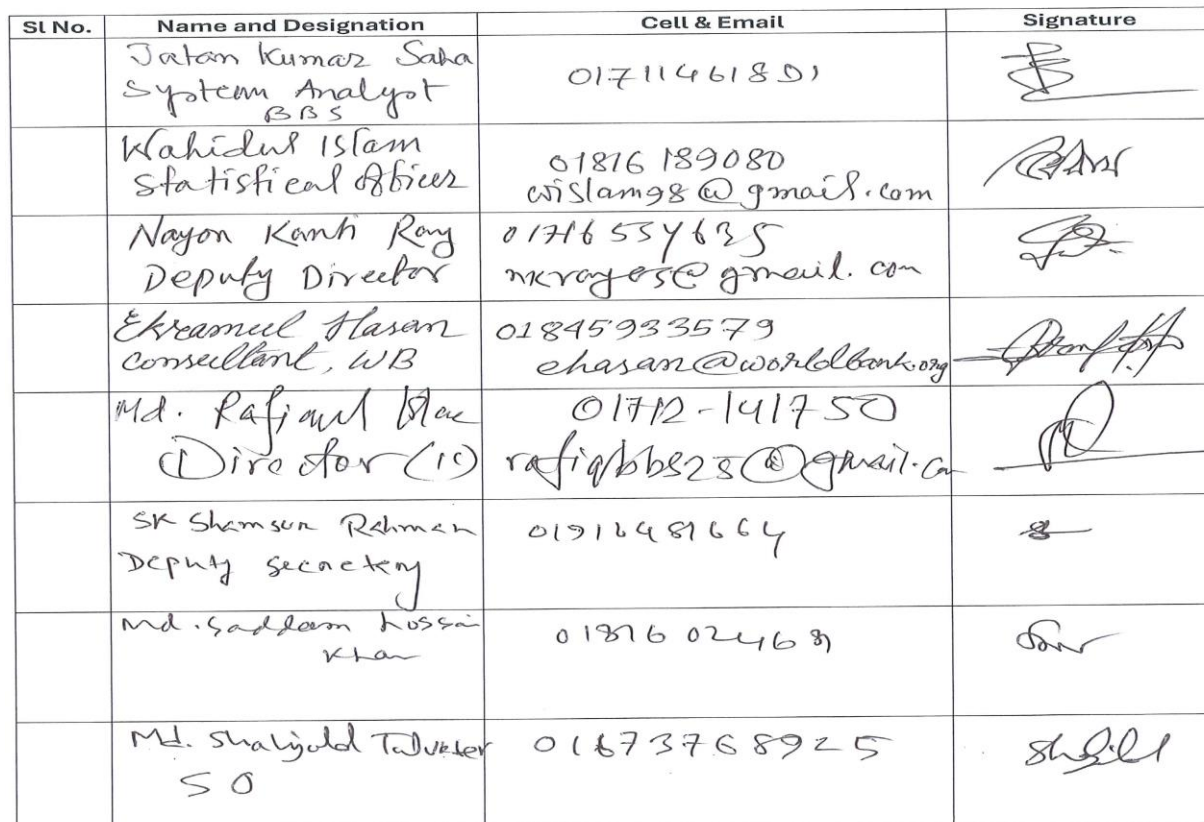 Sl No. Name and Designation Cell & Email Signature
Jatan Kumar Saha
System Analyst
BBS
Wahidul Islam
Statistical Officer
01816 189080
wislam98@gmail.com
Nayon Kanti Roy
Deputy Director
@gmail.com
Ekramul Hasan
Consultant, WB
01845933579
ehasan@worldbank.org
Md. Rafiqul
Director (IC)
01712-141750
rafiqbbs25@gmail.co
SK Shamsur Rahman
Deputy secretary
01916481664
Md. Saddam Hossain
Khan
Md. Talukter
SO
01673768925